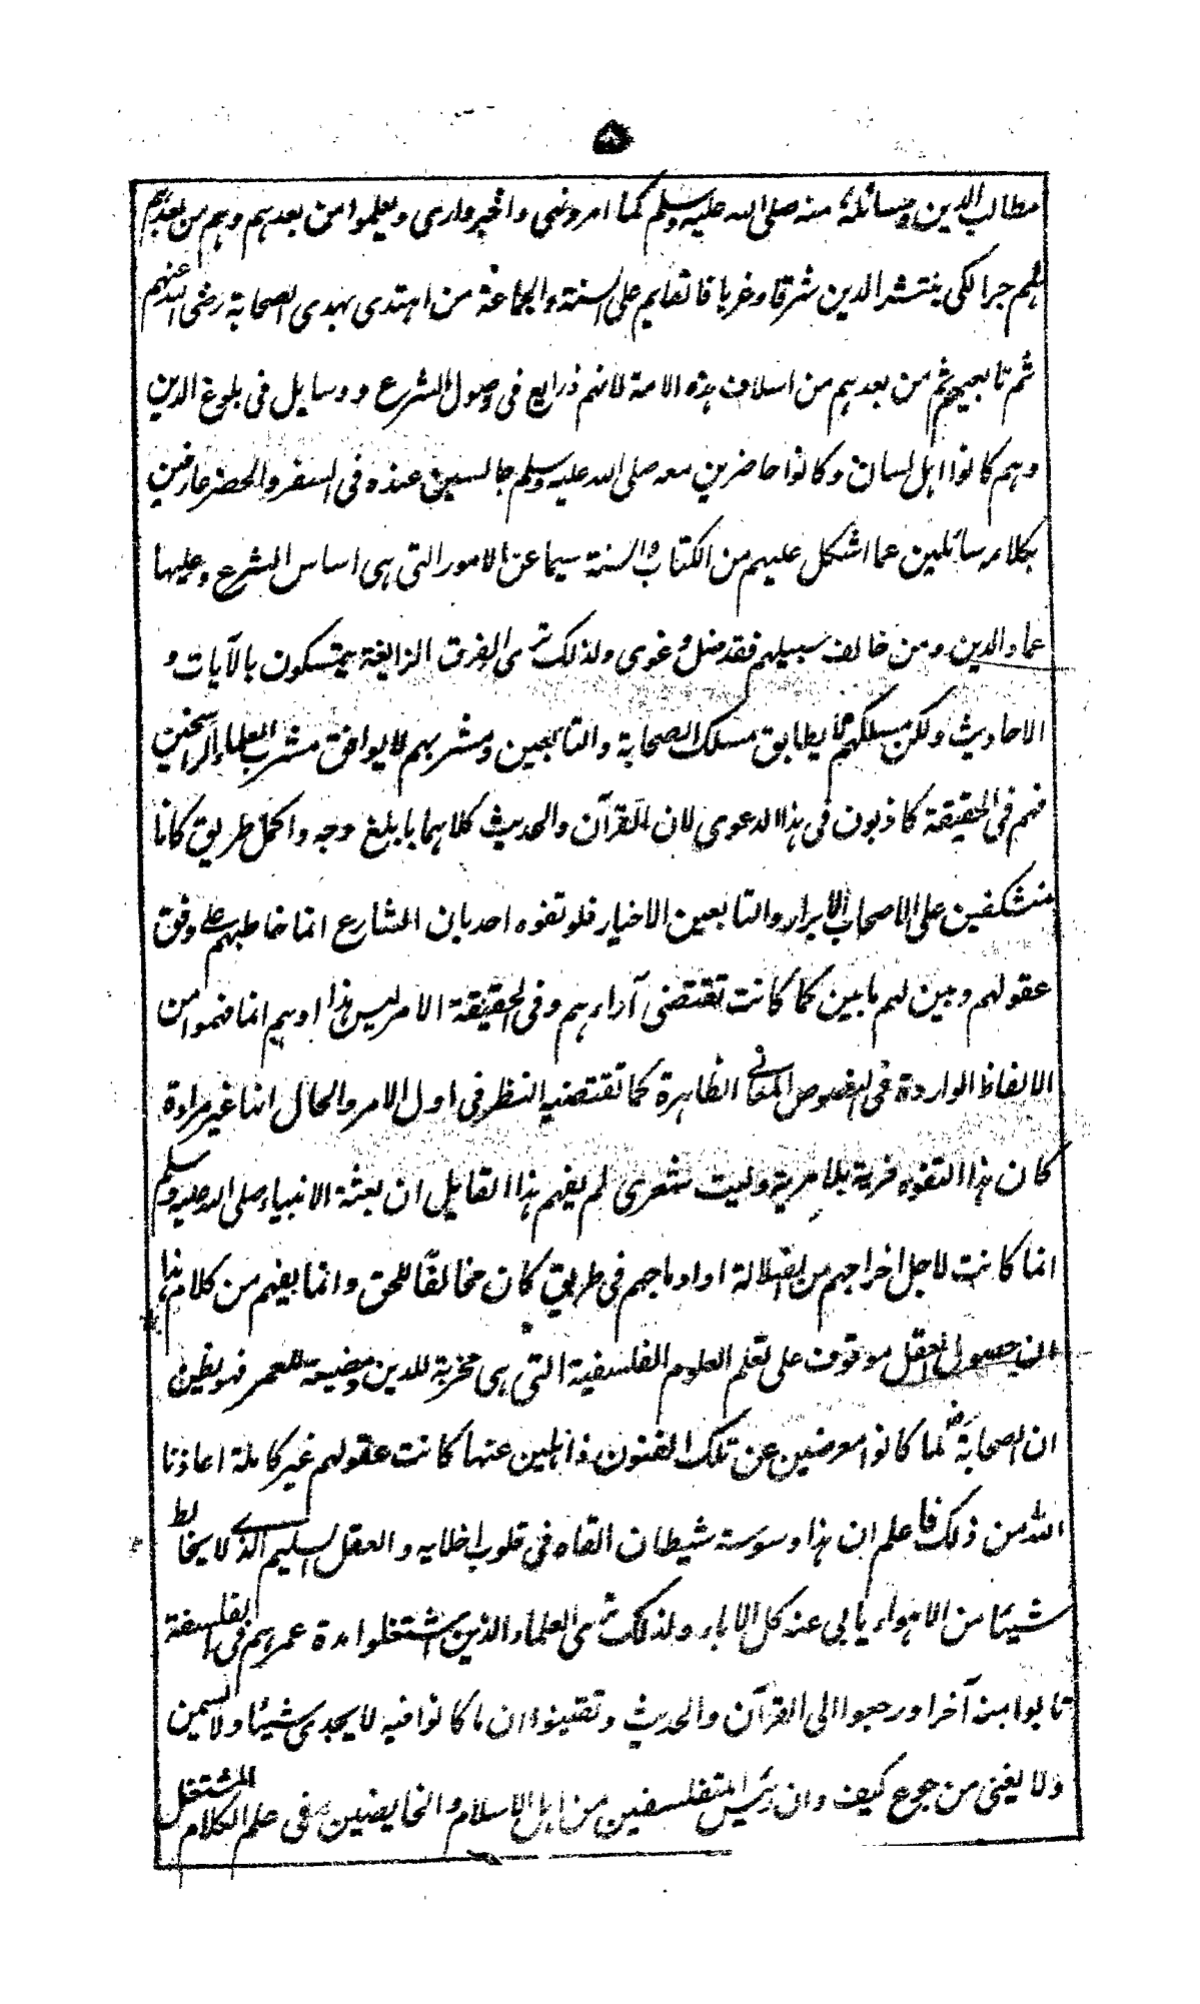 ۵
مطالب الدين ومسائله منه صلى الله عليه وسلم كما امر ونهى واخبر وارى ويعلموا من بعدهم وهم من بعدهم
هلم جرا لكى ينتشر الدين شرقا وغربا فالقايم على السنة والجماعة من اهتدى بهدى الصحابة رضى الله عنهم
ثم تابعيهم ثم من بعدهم من اسلاف هذه الامة لانهم ذرايع فى وصول الشرع ووسايل فى بلوغ الدين
وهم كانوا اهل لسان وكانوا حاضرين معه صلى الله عليه وسلم جالسين عنده فى السفر والحضر عارفين
بكلامه سائلين عما اشكل عليهم من الكتاب والسنة سيما عن الامور التى هى اساس الشرع وعليها
عماد الدين ومن خالف سبيلهم فقد ضل وغوى ولذلك ترى الفرق الزايغة يتمسكون بالآيات و
الاحاديث ولكن مسلكهم لما يطابق مسلك الصحابة والتابعين ومشربهم لا يوافق مشرب العلماء الراسخين
فهم فى الحقيقة كاذبون فى هذا الدعوى لان القرآن والحديث كلاهما بابلغ وجه واكمل طريق كانا
منكشفين على الاصحاب الابرار والتابعين الاخيار فلو تفوه احد بان الشارع انما خاطبهم على وفق
عقولهم وبين لهم ما بين كما كانت تقتضى آراءهم وفى الحقيقة الامر ليس هذا او هم انما فهموا من
الالفاظ الواردة فى النصوص المعانى الظاهرة كما تقتضيه النظر فى اول الامر والحال انها غير مرادة
كان هذا التفوه فرية بلا مرية وليت شعرى لم يفهم هذا القايل ان بعثة الانبياء صلى الله عليه وسلم
انما كانت لاجل اخراجهم من الضلالة او ادماجهم فى طريق كان مخالفا للحق وانما يفهم من كلام هذا
ان حصول العقل موقوف على تعلم العلوم الفلسفية التى هى مخربة للدين ومضيعة للعمر فهو يظن
ان الصحابة رض لما كانوا معرضين عن تلك الفنون وذاهلين عنها كانت عقولهم غير كاملة اعاذنا
الله من ذلك فاعلم ان هذا وسوسة شيطان القاه فى قلوب اخلايه والعقل السليم الذى لا يخالط
شيئا من الاهواء يابى عنه كل الاباء ولذلك ترى العلماء الذين اشتغلوا مدة عمرهم فى الفلسفة
تابوا منه آخرا ورجعوا الى القرآن والحديث وتيقنوا ان ما كانوا فيه لا يجدى شيئا ولا يسمن
ولا يغنى من جوع كيف وان رئيس المتفلسفين من اهل الاسلام والخايضين فى علم الكلام المشتغل